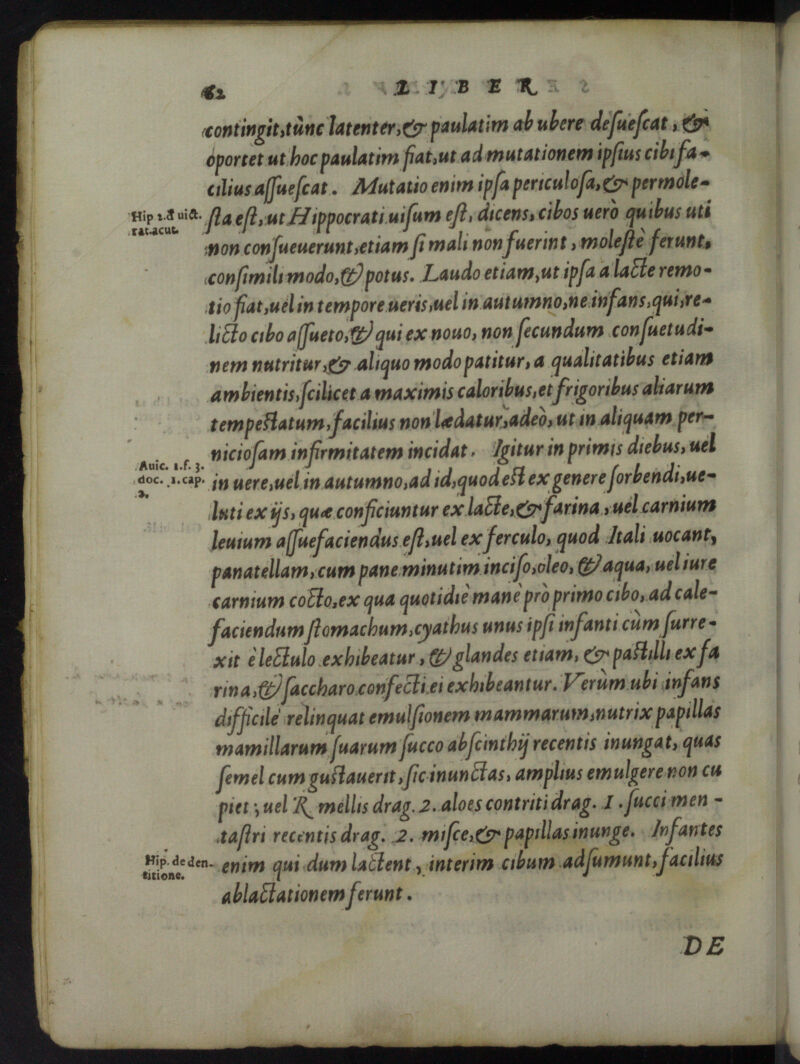 62 LIBER
contingit,tùnc latenter,& paulatim ab ubere desuescat, &
oportet ut hoc paulatim fiat,ut ad mutationem ipsius cibi fa-
cilius assuescat. Mutatio enim ipsa periculosa,& permole-
Hip 2.d uict.
rat.acut.
sta est, ut Hippocrati uisum est, dicens, cibos uerò quibus uti
non consueuerunt,etiam si mali non fuerint, molestè ferunt,
consimili modo,& potus. Laudo etiam,ut ipsa a lacte remo-
tio fiat,uel in tempore ueris,uel in autumno,ne infans,qui,re-
licto cibo assueto,& qui ex nouo, non secundum consuetudi-
nem nutritur,& aliquo modo patitur, a qualitatibus etiam
ambientis,scilicet a maximis caloribus,et frigoribus aliarum
tempestatum,facilius non lædatur,adeò, ut in aliquam per-
niciosam infirmitatem incidat. Igitur in primis diebus, uel
Auic. 1.f. 3.
doc. 1.cap.
2.
in uere,uel in autumno,ad id,quod est ex genere sorbendi,ue-
luti ex ijs, quæ conficiuntur ex lacte,& farina, uel carnium
leuium assuefaciendus est,uel ex ferculo, quod Itali uocant,
panatellam,cum pane minutim inciso,oleo, & aqua, uel iure
carnium cocto,ex qua quotidiè manè prò primo cibo, ad cale-
faciendum stomachum,cyathus unus ipsi infanti cùm surre-
xit è lectulo exhibeatur, & glandes etiam, & pastilli ex fa
rina,& saccharo confecti ei exhibeantur. Verùm ubi infans
difficilè relinquat emulsionem mammarum,nutrix papillas
mamillarum suarum succo abscinthij recentis inungat, quas
semel cum gustauerit, sic inunctas, amplius emulgere non cu
piet; uel ℞ mellis drag. 2. aloes contriti drag. 1. succi men-
tastri recentis drag. 2. misce,& papillas inunge. Infantes
Hip. de den-
titione.
enim qui dum lactent, interim cibum adsumunt,facilius
ablactationem ferunt.
DE